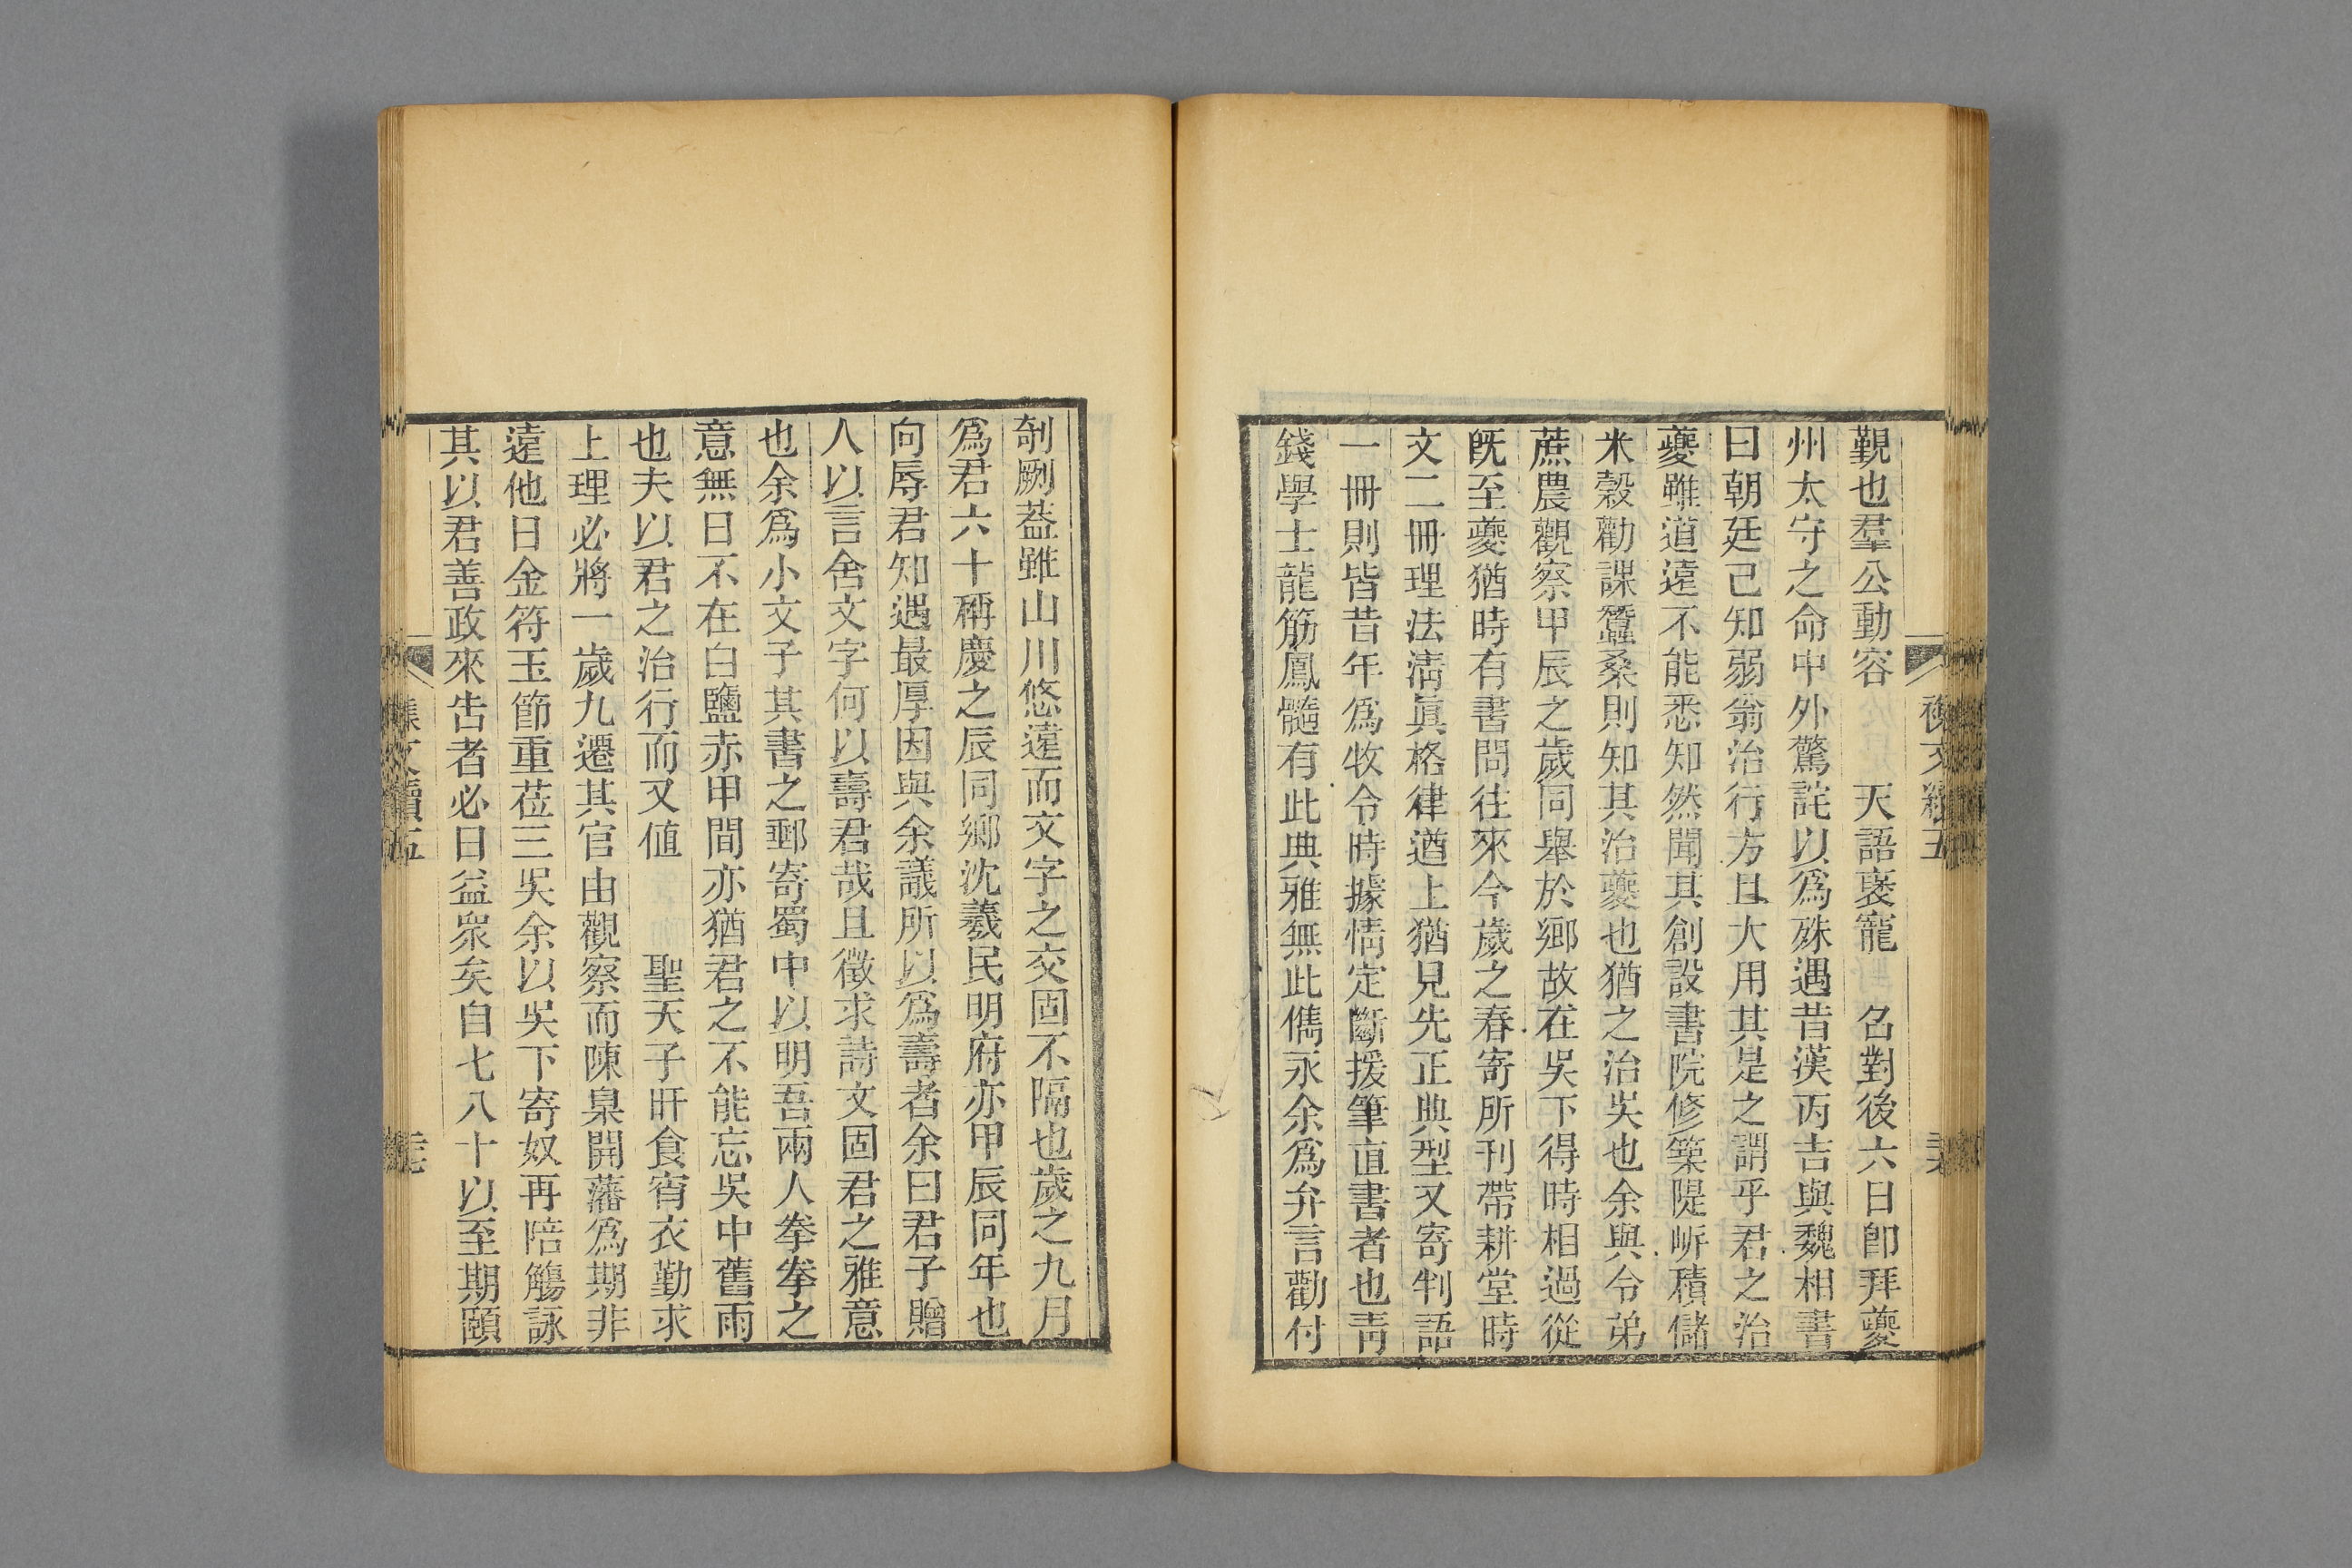 覲也羣公動容　　天語褒寵　名對後六日卽拜夔
州太守之命中外驚詫以爲殊遇昔漢丙吉與魏相書
曰朝廷已知弱翁治行方且大用其是之謂乎君之治
夔雖道遠不能悉知然聞其創設書院修築隄㟁積儲
米穀勸課蠶桑則知其治夔也猶之治吳也余與令弟
蔗農觀察甲辰之歲同舉於鄉故在吳下得時相過從
旣至夔猶時有書問往來今歲之春寄所刊帶耕堂時
文二冊理法淸眞格律遒上猶見先正典型又寄判語
一冊則皆昔年爲牧令時據情定斷援筆直書者也靑
錢學士龍筋鳳髓有此典雅無此儁永余爲弁言勸付
剞劂葢雖山川悠遠而文字之交固不隔也歲之九月
爲君六十稱慶之辰同鄉沈羲民明府亦甲辰同年也
向辱君知遇最厚因與余議所以爲壽者余曰君子贈
人以言舍文字何以壽君哉且徵求詩文固君之雅意
也余爲小文子其書之郵寄蜀中以明吾兩人拳拳之
意無日不在白鹽赤甲間亦猶君之不能忘吳中舊雨
也夫以君之治行而又值　　聖天子旰食宵衣勤求
上理必將一歲九遷其官由觀察而陳臬開藩爲期非
遠他日金符玉節重莅三吳余以吳下寄奴再陪觴詠
其以君善政來告者必日益眾矣自七八十以至期頤